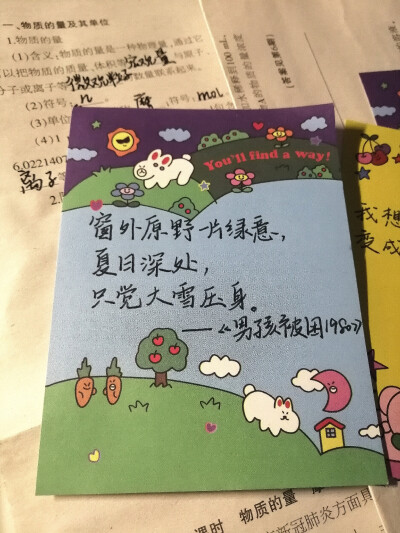 一、物质的量及其单位
1.物质的量
(1)含义:物质的量是一种物理量,通过它
可以把物质的质量、体积等宏观量
分子或离子等微观粒子数量联系起来。
(2)符号:n 摩 符号:mol
(3)单位
(4)1
6.0221407
离子
You'll find a way!
窗外原野一片绿意,
夏日深处,
只觉大雪压身。
——《男孩被困1980》
我想
变成
课时 物质的量
新冠肺炎方面具